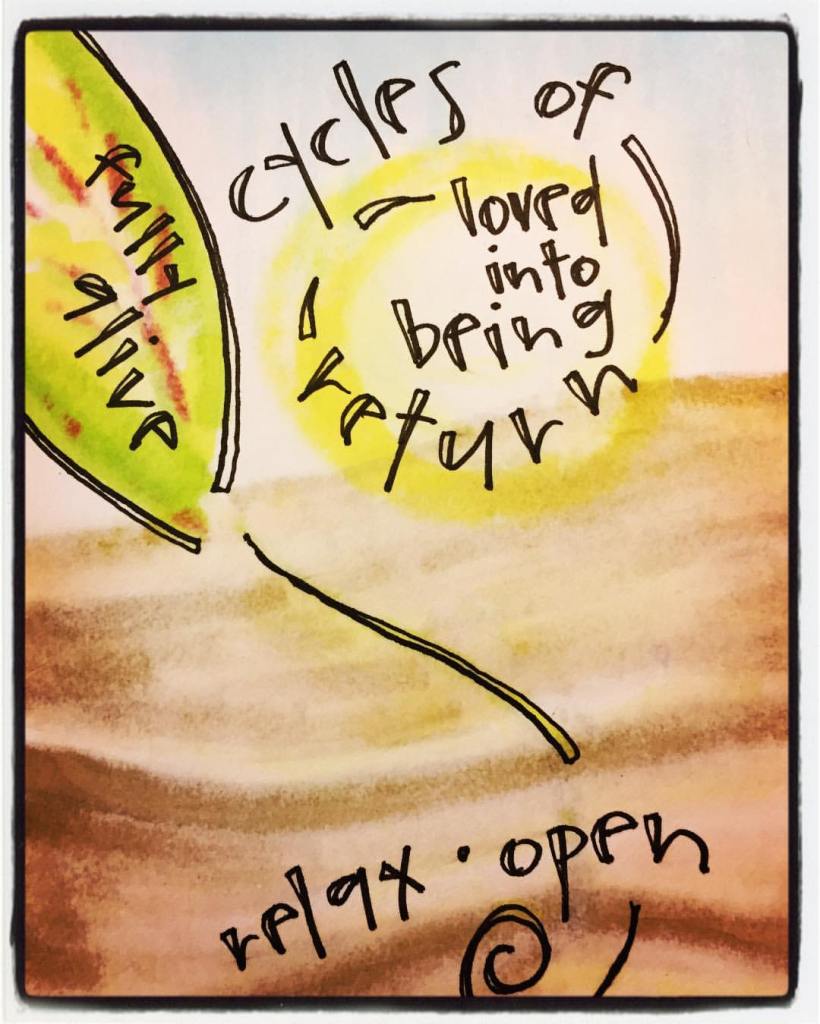 cycles of
loved
into
being
return
fully
alive
relax · open